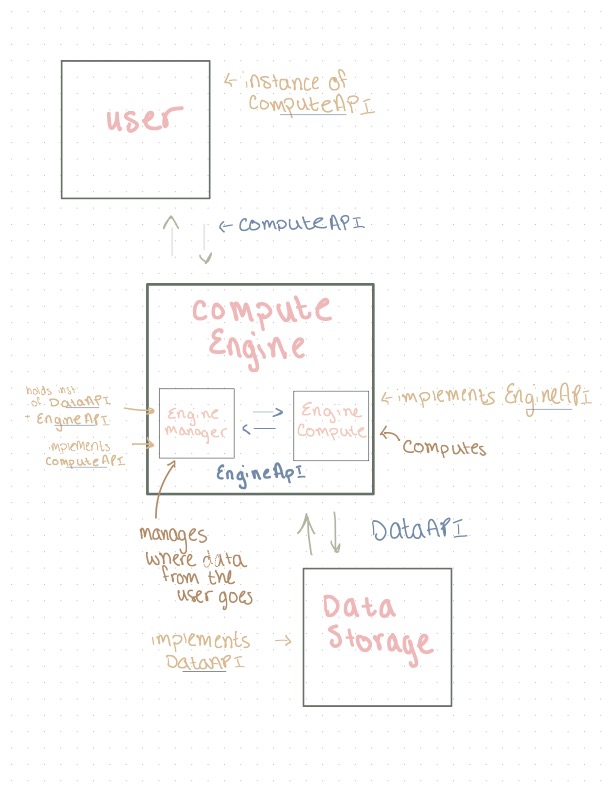 user
← instance of
ComputeAPI
← ComputeAPI
Compute
Engine
holds inst.
of DataAPI
+ EngineAPI
implements
ComputeAPI
Engine
manager
Engine
Compute
EngineApI
← implements EngineAPI
Computes
manages
where data
from the
user goes
DataAPI
Data
Storage
implements →
DataAPI